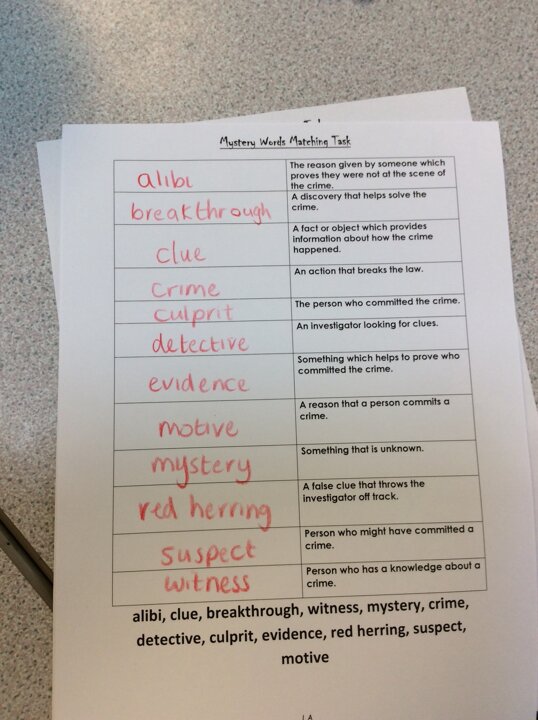 Mystery Words Matching Task
alibi
The reason given by someone which
proves they were not at the scene of
the crime.
breakthrough
A discovery that helps solve the
crime.
clue
A fact or object which provides
information about how the crime
happened.
crime
An action that breaks the law.
culprit
The person who committed the crime.
detective
An investigator looking for clues.
evidence
Something which helps to prove who
committed the crime.
motive
A reason that a person commits a
crime.
mystery
Something that is unknown.
red herring
A false clue that throws the
investigator off track.
suspect
Person who might have committed a
crime.
witness
Person who has a knowledge about a
crime.
alibi, clue, breakthrough, witness, mystery, crime,
detective, culprit, evidence, red herring, suspect,
motive
LA